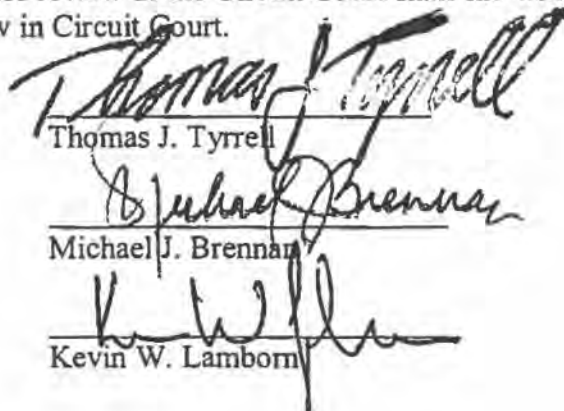 w in Circuit Court.
Thomas J Tyrrell
Thomas J. Tyrrell
Michael J Brennan
Michael J. Brennan
Kevin W. Lamborn